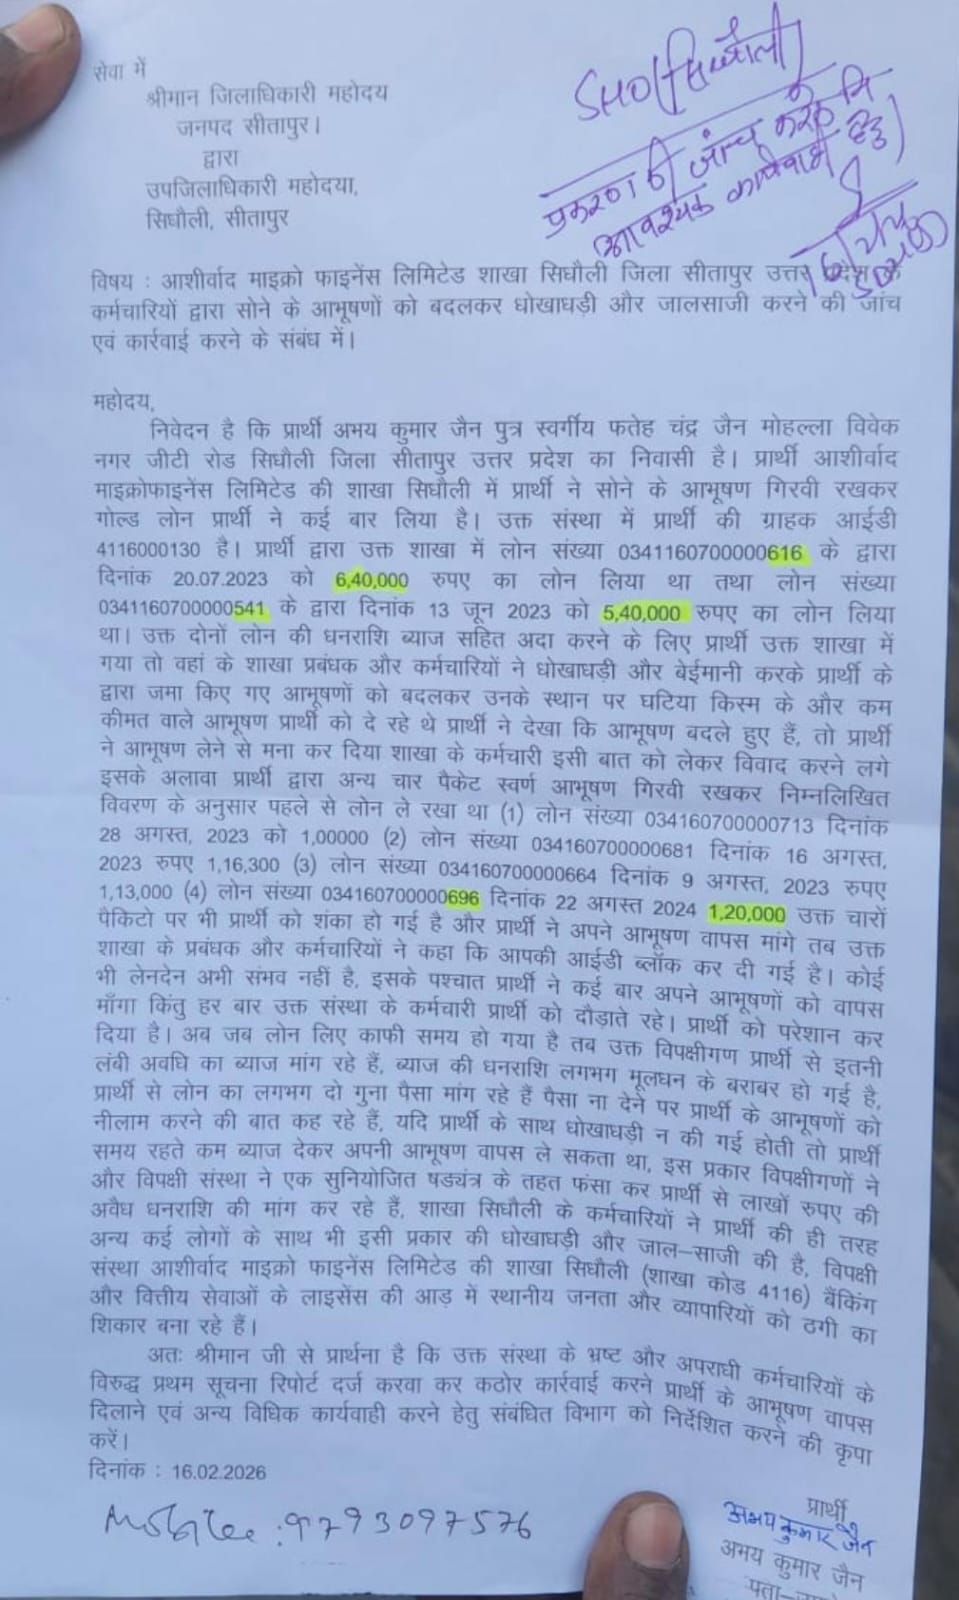 सेवा में
श्रीमान जिलाधिकारी महोदय
जनपद सीतापुर।
द्वारा
उपजिलाधिकारी महोदया,
सिधौली, सीतापुर
SHO/सिधौली
प्रकरण की जांच करके
आवश्यक कार्यवाही हेतु
विषय : आशीर्वाद माइक्रो फाइनेंस लिमिटेड शाखा सिधौली जिला सीतापुर उत्तर प्रदेश के
कर्मचारियों द्वारा सोने के आभूषणों को बदलकर धोखाधड़ी और जालसाजी करने की जांच
एवं कार्रवाई करने के संबंध में।
महोदय,
निवेदन है कि प्रार्थी अभय कुमार जैन पुत्र स्वर्गीय फतेह चंद्र जैन मोहल्ला विवेक
नगर जीटी रोड सिधौली जिला सीतापुर उत्तर प्रदेश का निवासी है। प्रार्थी आशीर्वाद
माइक्रोफाइनेंस लिमिटेड की शाखा सिधौली में प्रार्थी ने सोने के आभूषण गिरवी रखकर
गोल्ड लोन प्रार्थी ने कई बार लिया है। उक्त संस्था में प्रार्थी की ग्राहक आईडी
4116000130 है। प्रार्थी द्वारा उक्त शाखा में लोन संख्या 0341160700000616 के द्वारा
दिनांक 20.07.2023 को 6,40,000 रुपए का लोन लिया था तथा लोन संख्या
0341160700000541 के द्वारा दिनांक 13 जून 2023 को 5,40,000 रुपए का लोन लिया
था। उक्त दोनों लोन की धनराशि ब्याज सहित अदा करने के लिए प्रार्थी उक्त शाखा में
गया तो वहां के शाखा प्रबंधक और कर्मचारियों ने धोखाधड़ी और बेईमानी करके प्रार्थी के
द्वारा जमा किए गए आभूषणों को बदलकर उनके स्थान पर घटिया किस्म के और कम
कीमत वाले आभूषण प्रार्थी को दे रहे थे प्रार्थी ने देखा कि आभूषण बदले हुए हैं, तो प्रार्थी
ने आभूषण लेने से मना कर दिया शाखा के कर्मचारी इसी बात को लेकर विवाद करने लगे
इसके अलावा प्रार्थी द्वारा अन्य चार पैकेट स्वर्ण आभूषण गिरवी रखकर निम्नलिखित
विवरण के अनुसार पहले से लोन ले रखा था (1) लोन संख्या 034160700000713 दिनांक
28 अगस्त, 2023 को 1,00000 (2) लोन संख्या 034160700000681 दिनांक 16 अगस्त,
2023 रुपए 1,16,300 (3) लोन संख्या 034160700000664 दिनांक 9 अगस्त, 2023 रुपए
1,13,000 (4) लोन संख्या 034160700000696 दिनांक 22 अगस्त 2024 1,20,000 उक्त चारों
पैकिटो पर भी प्रार्थी को शंका हो गई है और प्रार्थी ने अपने आभूषण वापस मांगे तब उक्त
शाखा के प्रबंधक और कर्मचारियों ने कहा कि आपकी आईडी ब्लॉक कर दी गई है। कोई
भी लेनदेन अभी संभव नहीं है, इसके पश्चात प्रार्थी ने कई बार अपने आभूषणों को वापस
माँगा किंतु हर बार उक्त संस्था के कर्मचारी प्रार्थी को दौड़ाते रहे। प्रार्थी को परेशान कर
दिया है। अब जब लोन लिए काफी समय हो गया है तब उक्त विपक्षीगण प्रार्थी से इतनी
लंबी अवधि का ब्याज मांग रहे हैं, ब्याज की धनराशि लगभग मूलधन के बराबर हो गई है,
प्रार्थी से लोन का लगभग दो गुना पैसा मांग रहे हैं पैसा ना देने पर प्रार्थी के आभूषणों को
नीलाम करने की बात कह रहे हैं, यदि प्रार्थी के साथ धोखाधड़ी न की गई होती तो प्रार्थी
समय रहते कम ब्याज देकर अपनी आभूषण वापस ले सकता था, इस प्रकार विपक्षीगणों ने
और विपक्षी संस्था ने एक सुनियोजित षड्यंत्र के तहत फंसा कर प्रार्थी से लाखों रुपए की
अवैध धनराशि की मांग कर रहे हैं, शाखा सिधौली के कर्मचारियों ने प्रार्थी की ही तरह
अन्य कई लोगों के साथ भी इसी प्रकार की धोखाधड़ी और जाल–साजी की है, विपक्षी
संस्था आशीर्वाद माइक्रो फाइनेंस लिमिटेड की शाखा सिधौली (शाखा कोड 4116) बैंकिंग
और वित्तीय सेवाओं के लाइसेंस की आड़ में स्थानीय जनता और व्यापारियों को ठगी का
शिकार बना रहे हैं।
अतः श्रीमान जी से प्रार्थना है कि उक्त संस्था के भ्रष्ट और अपराधी कर्मचारियों के
विरुद्ध प्रथम सूचना रिपोर्ट दर्ज करवा कर कठोर कार्रवाई करने प्रार्थी के आभूषण वापस
दिलाने एवं अन्य विधिक कार्यवाही करने हेतु संबंधित विभाग को निर्देशित करने की कृपा
करें।
दिनांक : 16.02.2026
प्रार्थी
अभय कुमार जैन
Mobile : 9793097576
अभय कुमार जैन